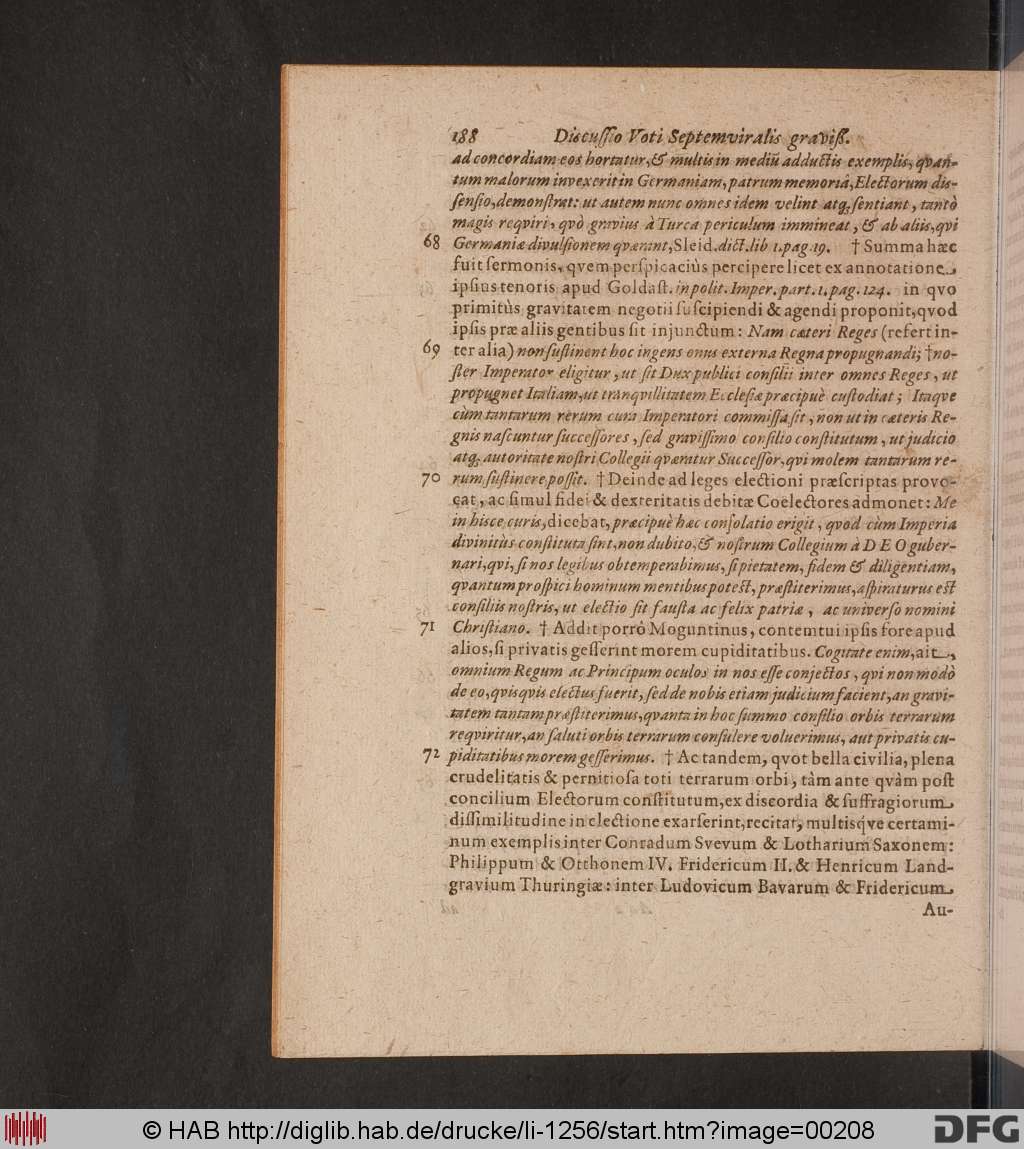 188 Discuſſio Voti Septemviralis graviß.
ad concordiam eos hortatur, & multis in mediũ adductis exemplis, qvan-
tum malorum invexerit in Germaniam, patrum memoriâ, Electorum dis-
ſenſio, demonſtrat: ut autem nunc omnes idem velint atq; ſentiant, tantò
magis reqviri, qvò gravius à Turca periculum immineat, & ab aliis, qvi
68 Germaniæ divulſionem qværant, Sleid. dict. lib 1. pag. 19. † Summa hæc
fuit ſermonis, qvem perſpicaciùs percipere licet ex annotatione
ipſius tenoris apud Goldaſt. in polit. Imper. part. 1. pag. 124. in qvo
primitùs gravitatem negotii ſuſcipiendi & agendi proponit, qvod
ipſis præ aliis gentibus ſit injunctum: Nam cæteri Reges (refert in-
69 ter alia) non ſuſtinent hoc ingens onus externa Regna propugnandi; † no-
ſter Imperator eligitur, ut ſit Dux publici conſilii inter omnes Reges, ut
propugnet Italiam, ut tranqvillitatem Eccleſiæ præcipuè cuſtodiat; Itaqve
cùm tantarum rerum cura Imperatori commiſſa ſit, non ut in cæteris Re-
gnis naſcuntur ſucceſſores, ſed graviſſimo conſilio conſtitutum, ut judicio
atq; autoritate noſtri Collegii qværatur Succeſſor, qvi molem tantarum re-
70 rum ſuſtinere poſſit. † Deinde ad leges electioni præſcriptas provo-
cat, ac ſimul fidei & dexteritatis debitæ Coelectores admonet: Me
in hisce curis, dicebat, præcipuè hæc conſolatio erigit, qvod cùm Imperia
divinitùs conſtituta ſint, non dubito, & noſtrum Collegium à DEO guber-
nari, qvi, ſi nos legibus obtemperabimus, ſi pietatem, fidem & diligentiam,
qvantum proſpici hominum mentibus poteſt, præſtiterimus, aſpiraturus eſt
conſiliis noſtris, ut electio ſit fauſta ac felix patriæ, ac univerſo nomini
71 Chriſtiano. † Addit porrò Moguntinus, contemtui ipſis fore apud
alios, ſi privatis geſſerint morem cupiditatibus. Cogitate enim, ait,
omnium Regum ac Principum oculos in nos eſſe conjectos, qvi non modò
de eo, qvisqvis electus fuerit, ſed de nobis etiam judicium facient, an gravi-
tatem tantam præſtiterimus, qvanta in hoc ſummo conſilio orbis terrarum
reqviritur, an ſaluti orbis terrarum conſulere voluerimus, aut privatis cu-
72 piditatibus morem geſſerimus. † Ac tandem, qvot bella civilia, plena
crudelitatis & pernitioſa toti terrarum orbi, tàm ante qvàm poſt
concilium Electorum conſtitutum, ex discordia & ſuffragiorum
diſſimilitudine in electione exarſerint, recitat, multisq́ve certami-
num exemplis inter Conradum Svevum & Lotharium Saxonem:
Philippum & Otthonem IV. Fridericum II. & Henricum Land-
gravium Thuringiæ: inter Ludovicum Bavarum & Fridericum
Au-
© HAB http://diglib.hab.de/drucke/li-1256/start.htm?image=00208
DFG